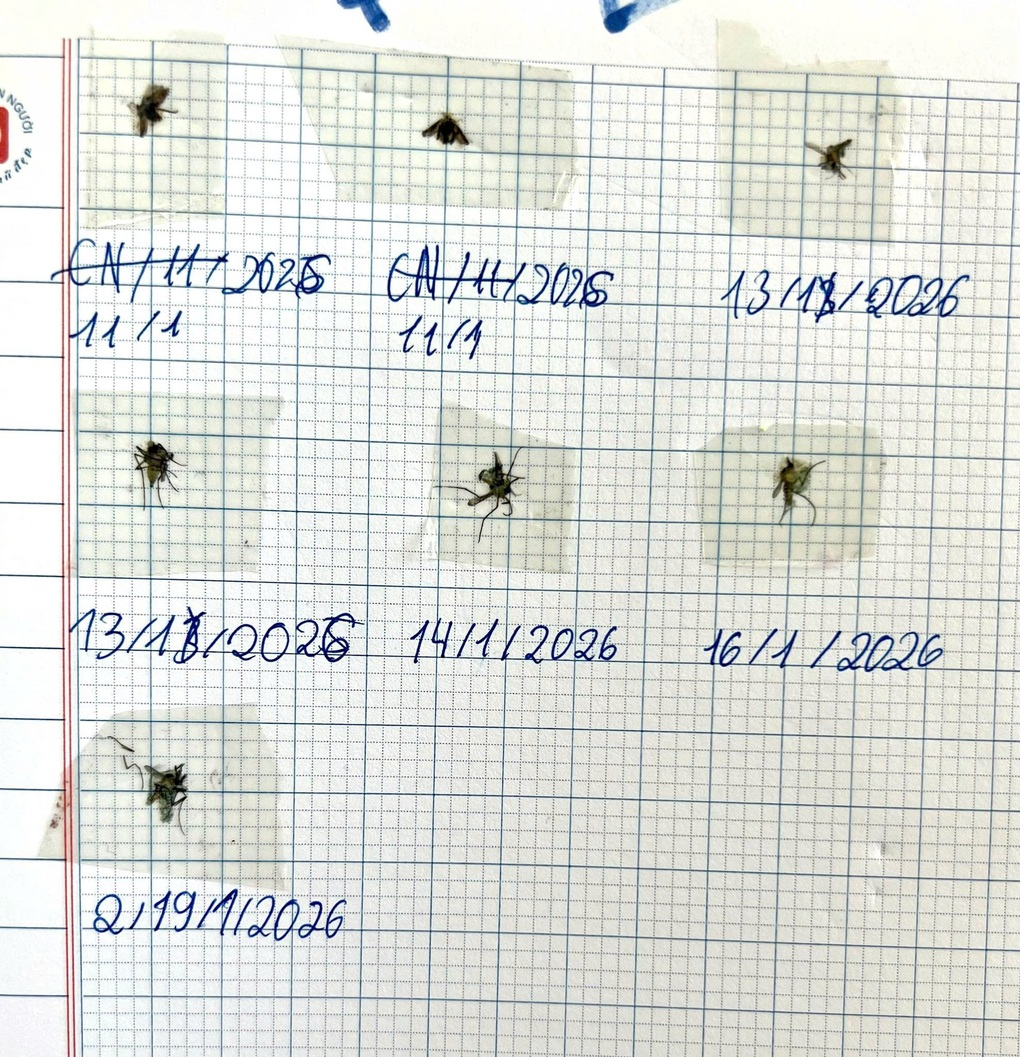 N NGƯỜI
CN/11/2026 CN/11/2026 13/1/2026
11/1 11/1
13/1/2026 14/1/2026 16/1/2026
2, 19/1/2026